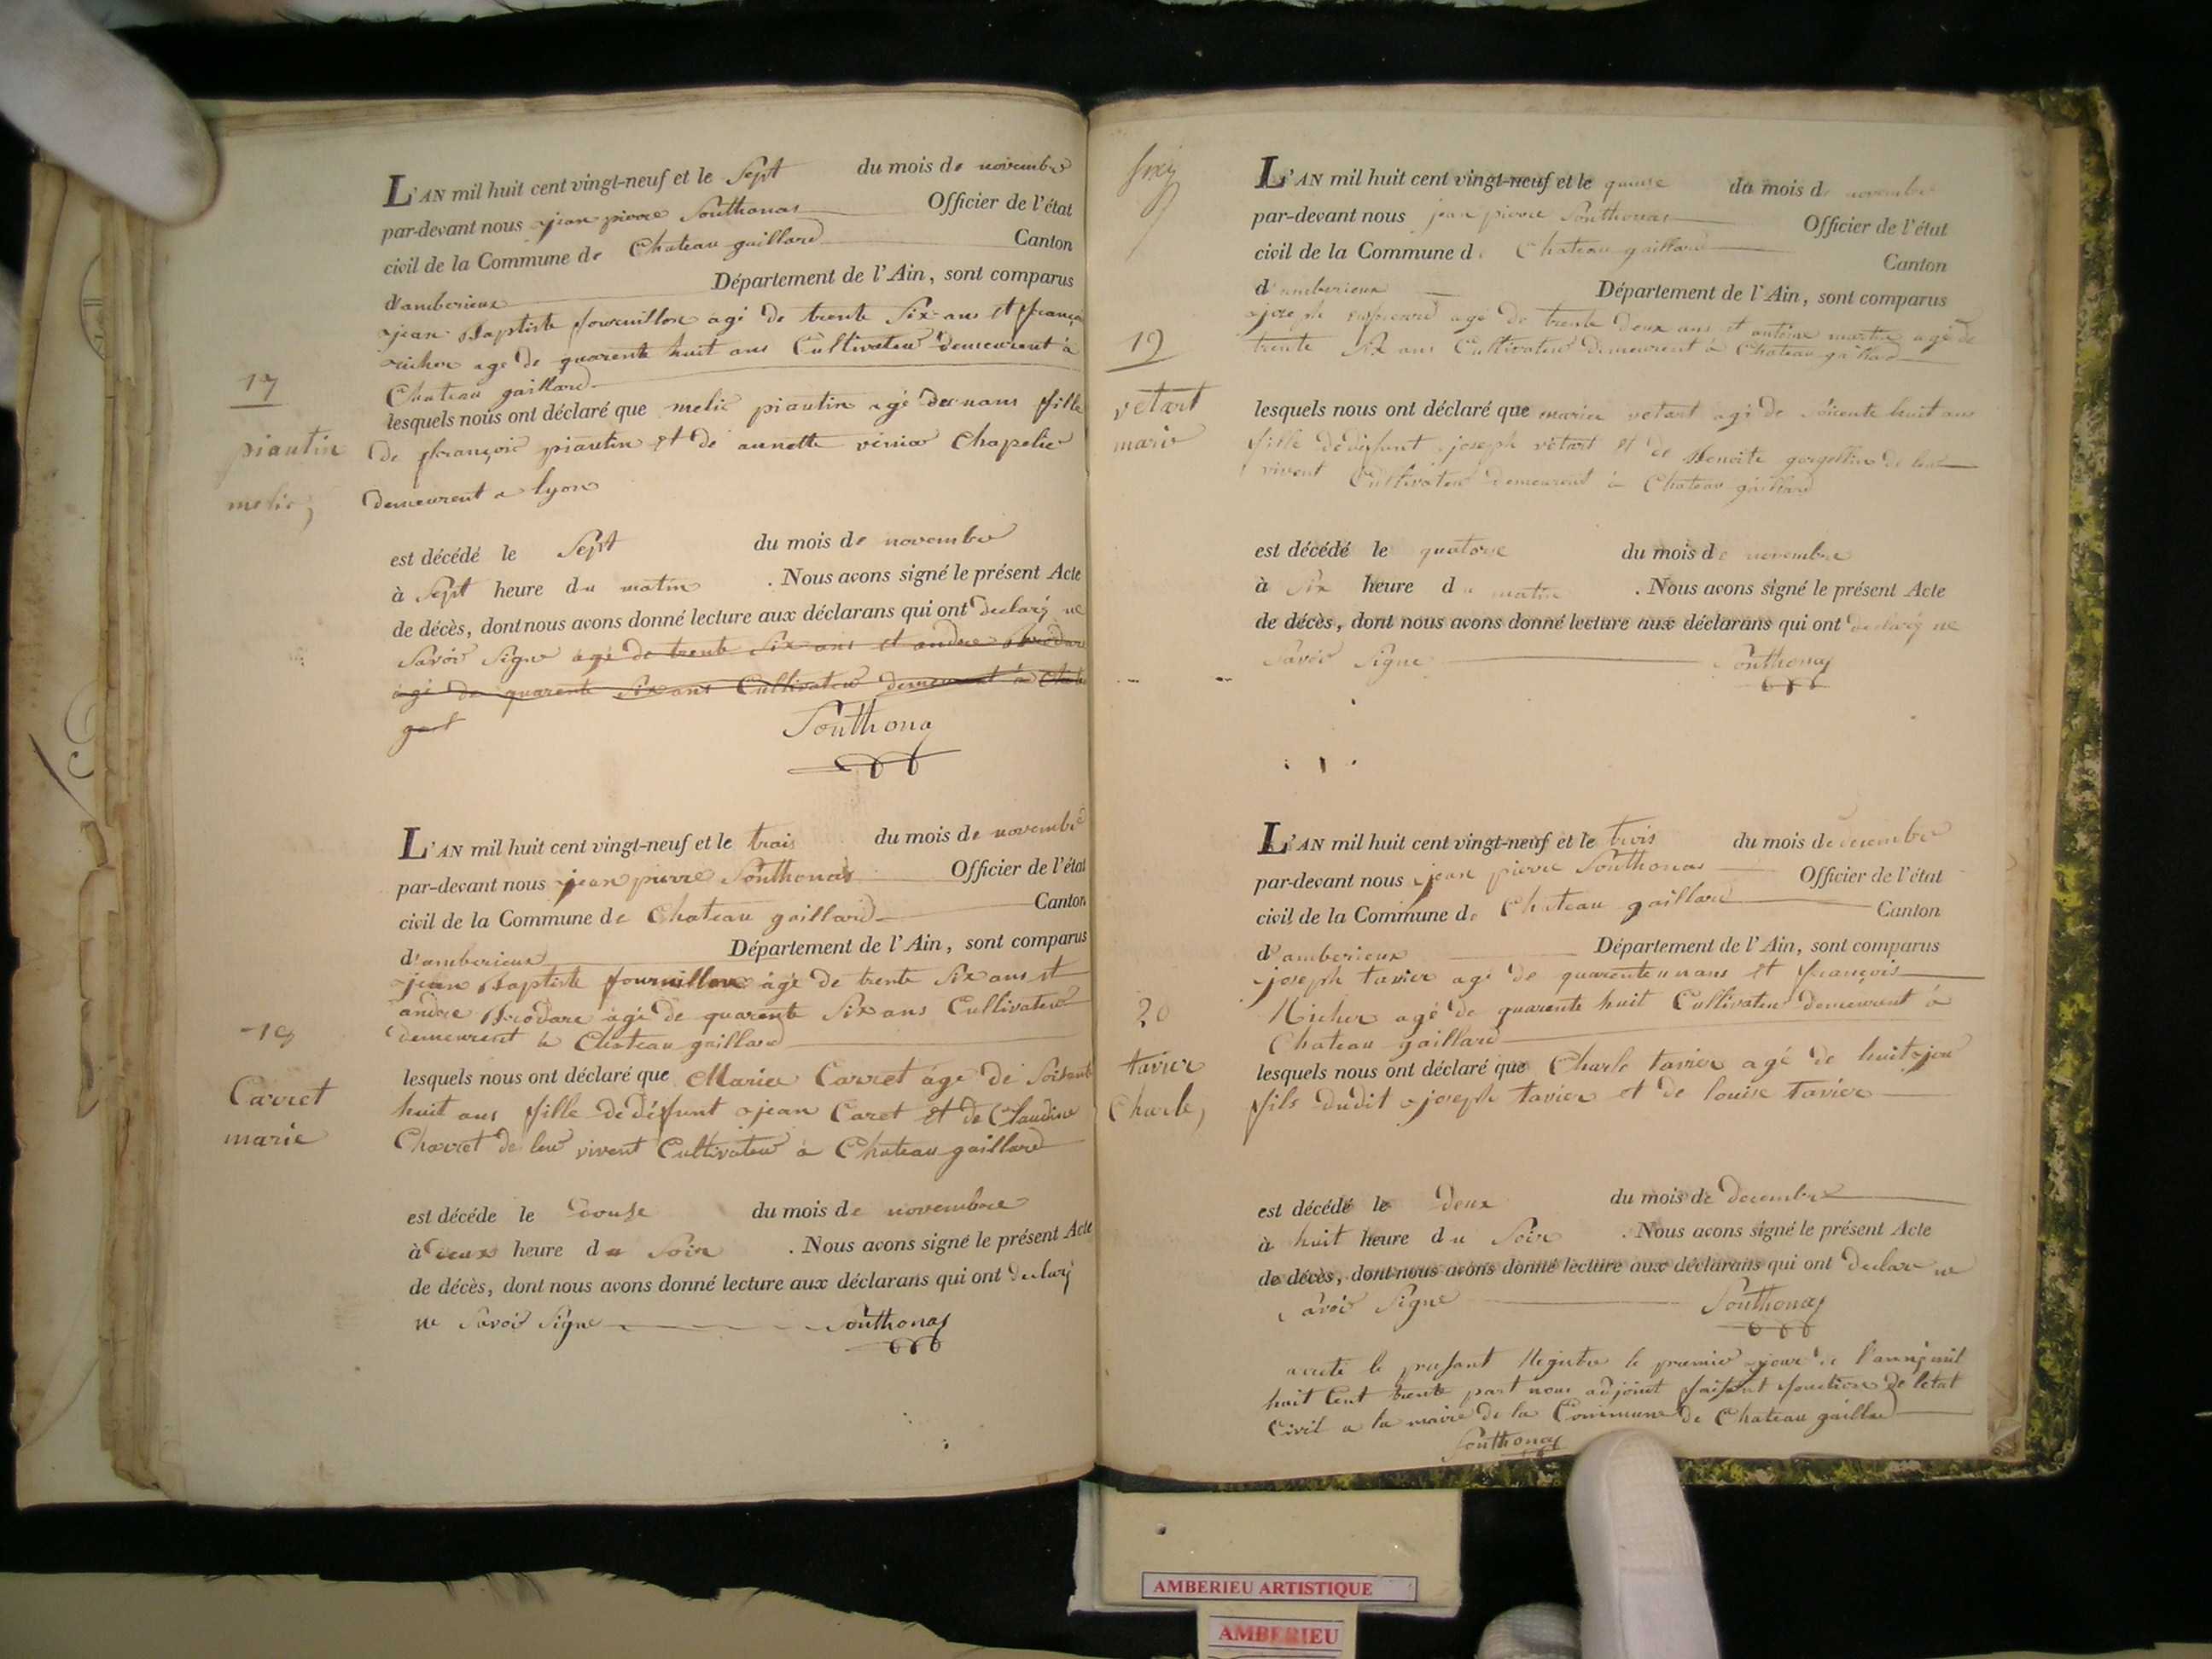 L'AN mil huit cent vingt-neuf et le Sept du mois de novembre
par-devant nous jean pierre Southonas Officier de l'état
civil de la Commune de Chateau gaillard Canton
d'amberieux Département de l'Ain, sont comparus
jean Baptiste fournillon agé de trente Six ans et françois
richer age de quarente huit ans Cultivateur demeurent à
Chateau gaillard
17
lesquels nous ont déclaré que melie piautin agé de unans fille
piautin
de françois piautin et de annette Chapelie
melie
demeurent a lyon
est décédé le Sept du mois de novembre
à Sept heure du matin . Nous avons signé le présent Acte
de décès, dont nous avons donné lecture aux déclarans qui ont declarz ne
Savoir Signe agé de trente Six ans et andre Brodare
agé de quarente Six ans Cultivateur demeurent à Chate
gail
Southonas
L'AN mil huit cent vingt-neuf et le trais du mois de novembre
par-devant nous jean pierre Southonas Officier de l'état
civil de la Commune de Chateau gaillard Canton
d'amberieux Département de l'Ain, sont comparus
jean Baptiste fournillon àgé de trente Six ans et
andre Brodare àgé de quarente Six ans Cultivateur
demeurent à Chateau gaillard
18
lesquels nous ont déclaré que Marie Carret agé de Soisente
Carret
huit ans fille de défunt jean Caret et de Claudine
marie
Charret de leur vivent Cultivateur a Chateau gaillard
est décéde le douse du mois de novembre
à deux heure du Soir . Nous avons signé le présent Acte
de décès, dont nous avons donné lecture aux déclarans qui ont declarz
ne Savoir Signe Southonas
L'AN mil huit cent vingt-neuf et le quinse du mois de novembre
par-devant nous jean pierre Southonas Officier de l'état
civil de la Commune de Chateau gaillard Canton
d'amberieux Département de l'Ain, sont comparus
joseph agé de trente deux ans et antoine martin agé de
trente Six ans Cultivateur demeurent à Chateau gaillard
19
vetart
marie
lesquels nous ont déclaré que marie vetart agé de Soisente huit ans
fille de defunt joseph vetart et de Benoite de leur
vivent Cultivateur demeurent à Chateau gaillard
est décédé le quatorse du mois de novembre
à Six heure du matin . Nous avons signé le présent Acte
de décès, dont nous avons donné lecture aux déclarans qui ont declarz ne
Savoir Signe Southonas
L'AN mil huit cent vingt-neuf et le trois du mois de decembre
par-devant nous jean pierre Southonas Officier de l'état
civil de la Commune de Chateau gaillard Canton
d'amberieux Département de l'Ain, sont comparus
joseph tavier agé de quarente unans et françois
Richer agé de quarente huit Cultivateur demeurent à
Chateau gaillard
20
tavier
Charle
lesquels nous ont déclaré que Charle tavier agé de huit jou
fils dudit joseph tavier et de louise tavier
est décédé le deux du mois de decembre
à huit heure du Soir . Nous avons signé le présent Acte
de décès, dont nous avons donné lecture aux déclarans qui ont declare ne
Savoir Signe Southonas
arreté le presant Registre le premier jour de l'annz mil
huit Cent trente part nous adjoint faisent fonction de letat
Civil a la mairie de la Commune de Chateau gaillard
Southonas
AMBERIEU ARTISTIQUE
AMBERIEU